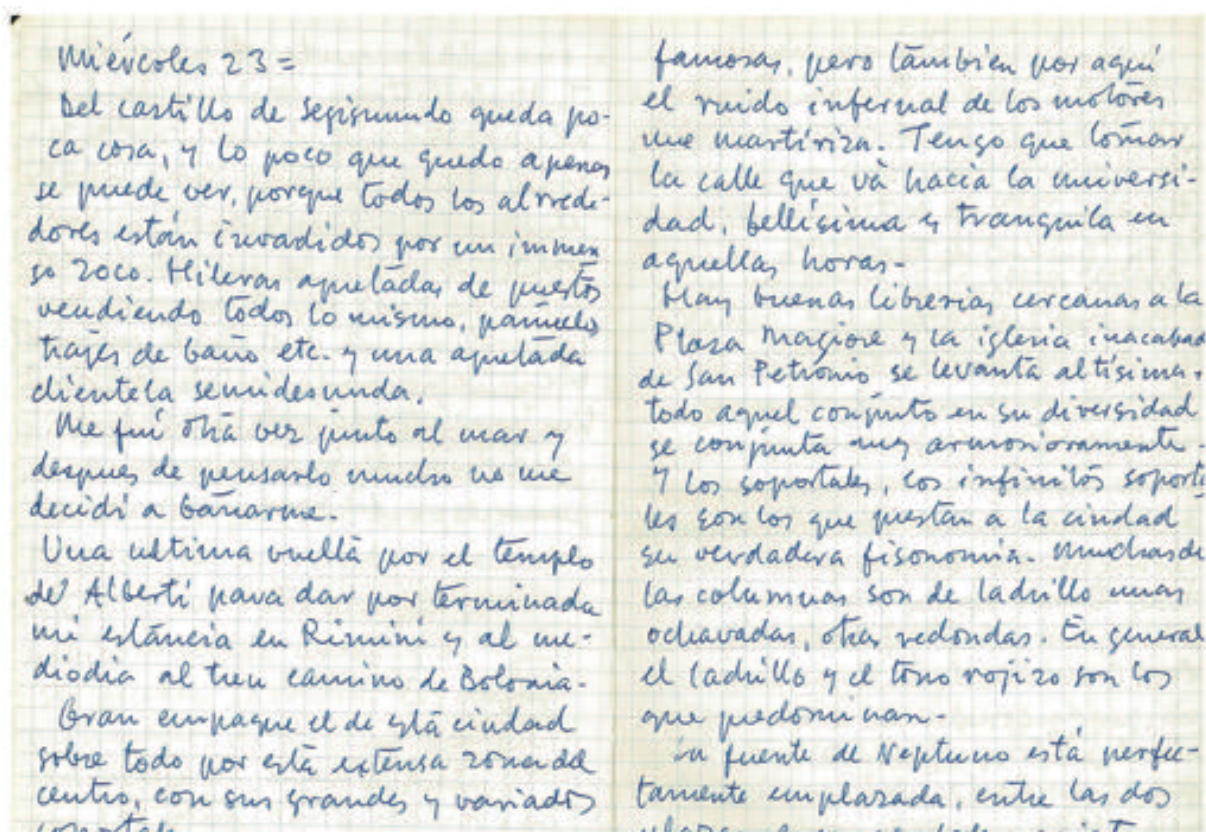 Miércoles 23=
Del castillo de Segismundo queda po-
ca cosa, y lo poco que queda apenas
se puede ver, porque todos los alrede-
dores están invadidos por un immen
so zoco. Hileras apretadas de puestos
vendiendo todos lo mismo, pañuelos
trajes de baño etc. y una apretada
clientela semidesnuda.
Me fuí otra vez junto al mar y
despues de pensarlo mucho no me
decidí a bañarme.
Una ultima vuelta por el templo
de Alberti para dar por terminada
mi estancia en Rimini y al me-
diodia al tren camino de Bolonia.
Gran empaque el de esta ciudad
sobre todo por esta extensa zona del
centro, con sus grandes y variados
famosas, pero tambien por aquí
el ruido infernal de los motores
me martiriza. Tengo que tomar
la calle que và hacia la universi-
dad, bellísima y tranquila en
aquellas horas-
Hay buenas librerias cercanas a la
Plaza Magiore y la iglesia inacabad
de San Petronio se levanta altísima.
todo aquel conjunto en su diversidad
se conjunta muy armoniosamente.
Y los soportales, los infinitos soporta
les son los que prestan a la ciudad
su verdadera fisonomia. Muchas de
las columnas son de ladrillo unas
ochavadas, otras redondas. En general
el ladrillo y el tono rojizo son los
que predominan-
La fuente de Neptuno está perfec-
tamente emplazada, entre las dos